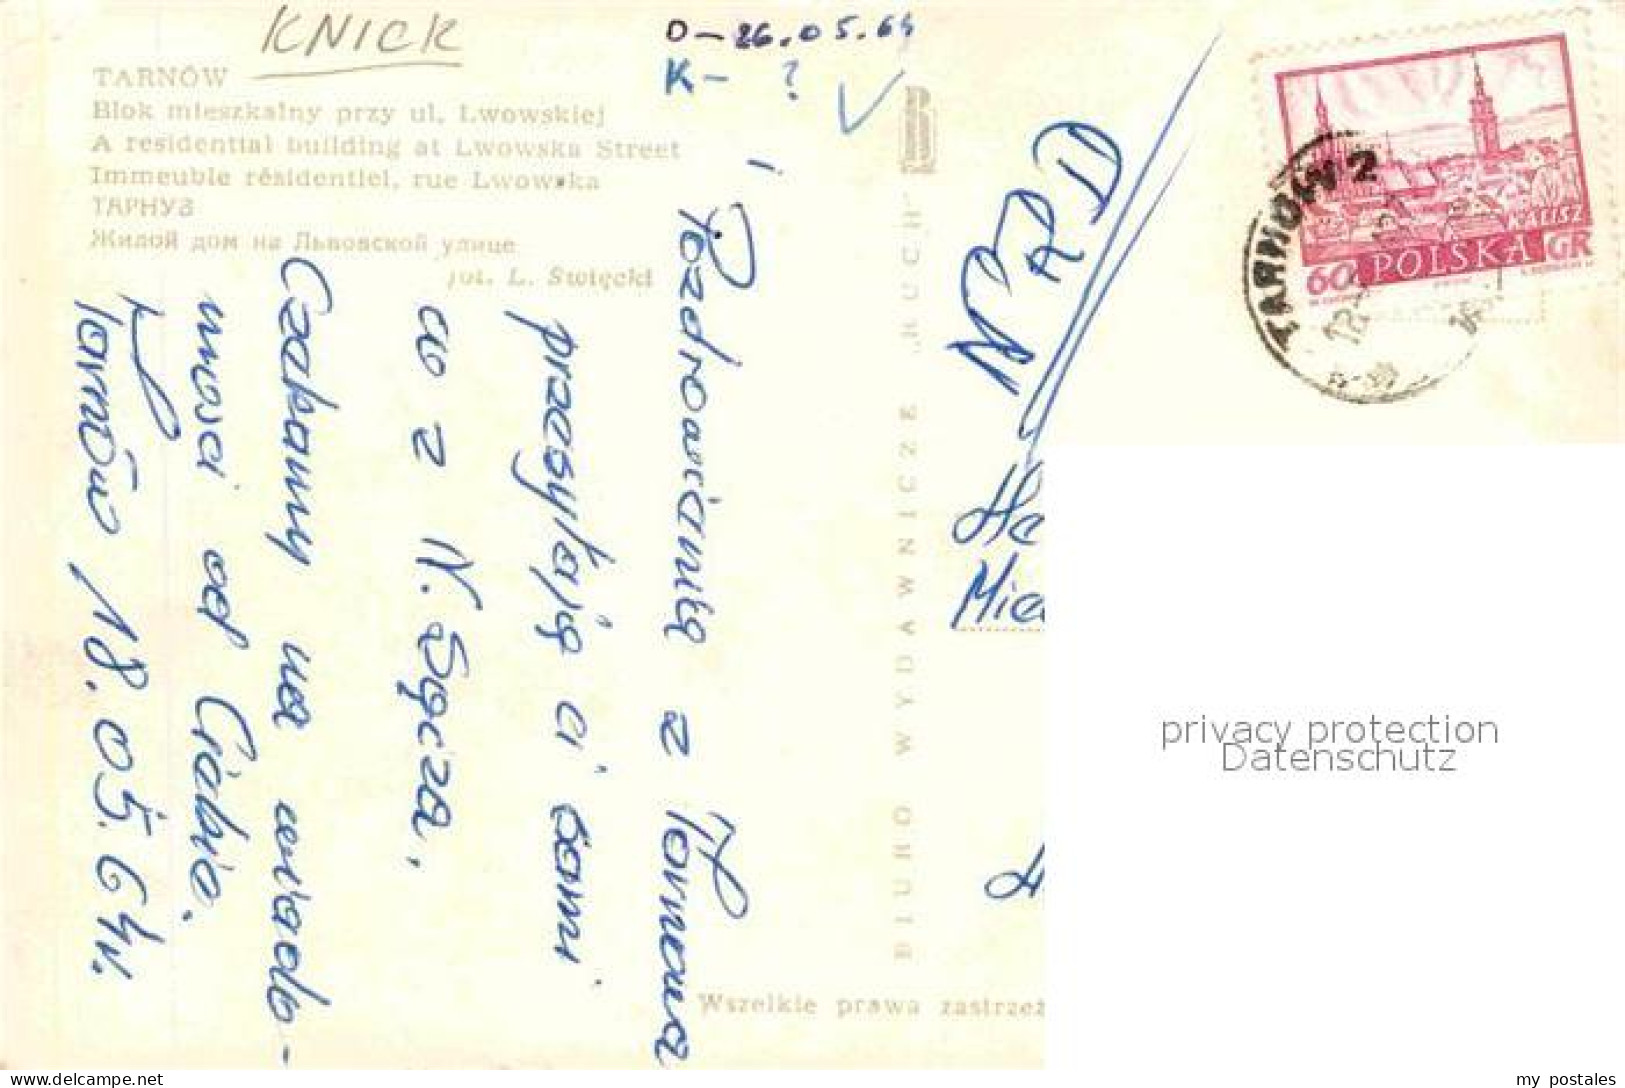 KNICK
D - 26.05.64
K - ?
TARNÓW
Blok mieszkalny przy ul. Lwowskiej
A residential building at Lwowska Street
Immeuble résidentiel, rue Lwowska
ТАРНУВ
Жилой дом на Львовской улице
fot. L. Święcki
Pozdrowionka z Tarnowa
przesyłają ci sami
co z N. Sącza.
Czekamy na wiado-
mości od Ciebie.
Tarnów 18.05.64r.
BIURO WYDAWNICZE „RUCH"
NRD
Wszelkie prawa zastrzeż
TARNÓW 2
KALISZ
60 POLSKA GR
privacy protection
Datenschutz
my postales